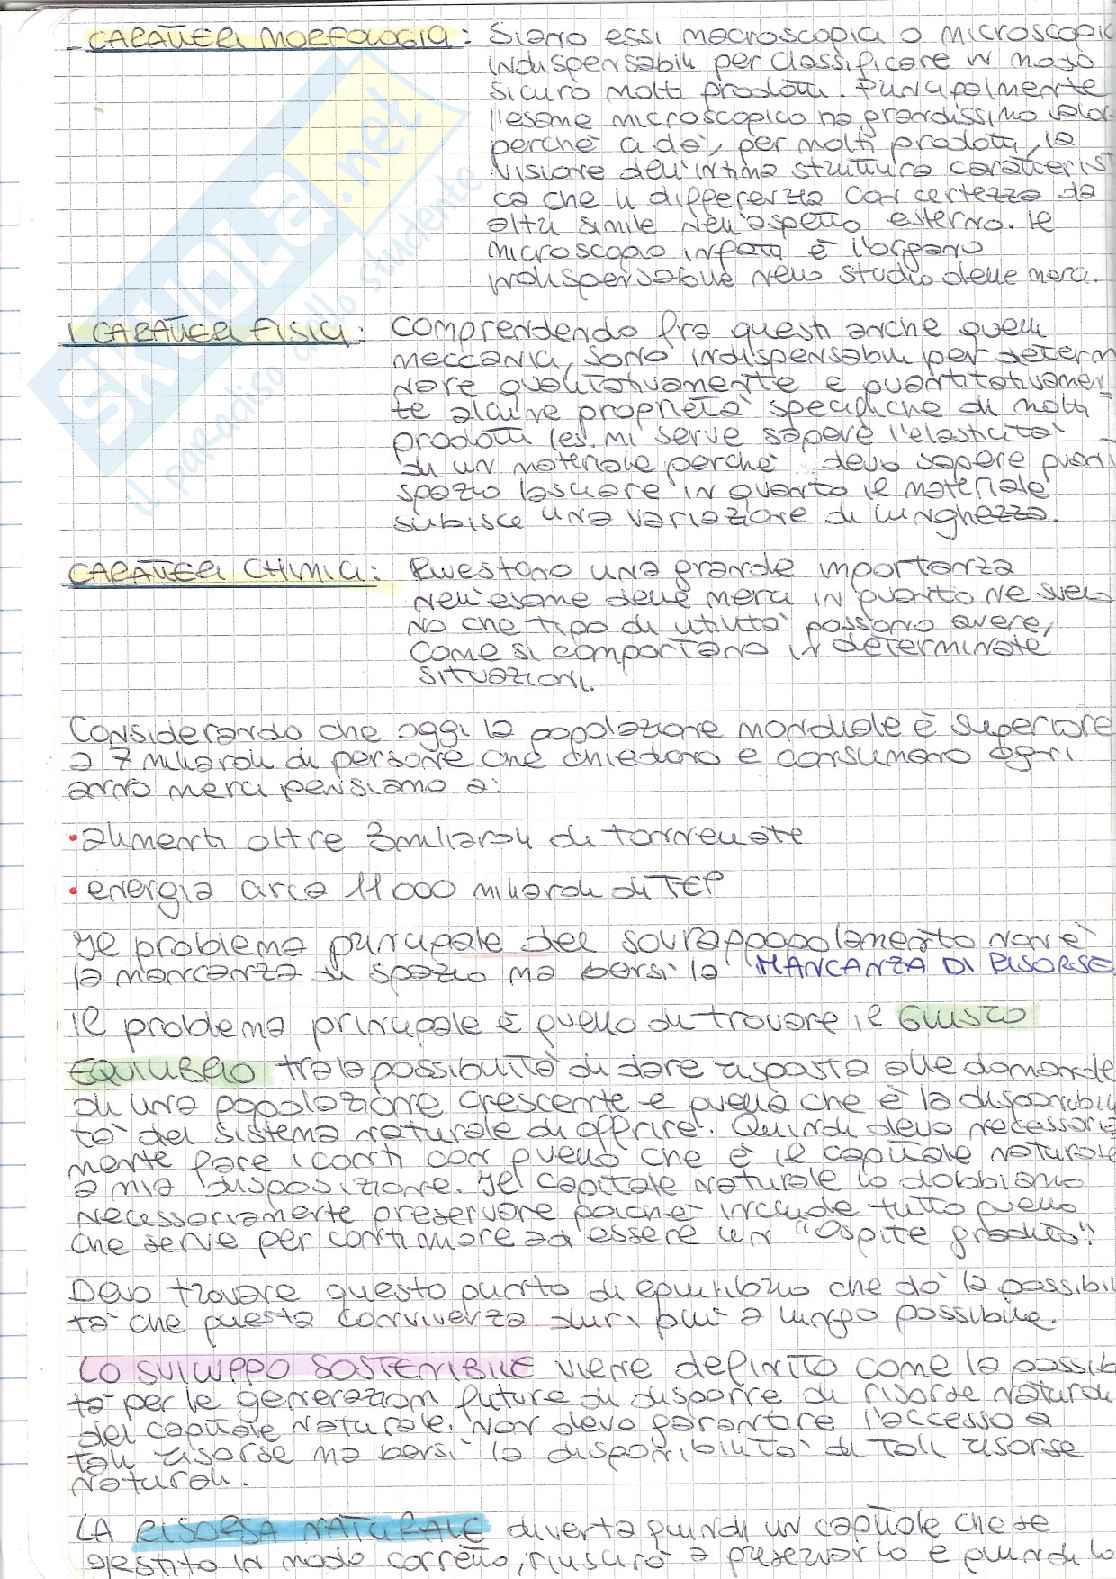 - CARATTERI MORFOLOGICI: Siano essi macroscopici o microscopic
indispensabili per classificare in modo
sicuro molti prodotti. Principalmente
l'esame microscopico ha grandissimo valor
perchè ci dà, per molti prodotti, la
visione dell'intima struttura caratteris
ca che li differenzia con certezza da
altri simile nell'aspetto esterno. Il
microscopio infatti è l'organo
indispensabile nello studio delle merci.
I CARATTERI FISICI: Comprendendo fra questi anche quelli
meccanici, sono indispensabili per determ
nare qualitativamente e quantitativamen
te alcune proprietà specifiche di molti
prodotti (es. mi serve sapere l'elasticità
di un materiale perchè devo sapere quan
spazio lasciare in quanto il materiale
subisce una variazione di lunghezza.
CARATTERI CHIMICI: Rivestono una grande importanza
nell'esame delle merci in quanto ne svela
no che tipo di utilità possono avere,
come si comportano in determinate
situazioni.
Considerando che oggi la popolazione mondiale è superiore
a 7 miliardi di persone che chiedono e consumano ogni
anno merci pensiamo a:
• alimenti oltre 3 miliardi di tonnellate
• energia circa 11 000 miliardi di TEP
Il problema principale del sovrappopolamento non è
la mancanza di spazio ma bensì la MANCANZA DI RISORSE
Il problema principale è quello di trovare il GIUSTO
EQUILIBRIO tra la possibilità di dare risposta alle domande
di una popolazione crescente e quella che è la disponibili
tà del sistema naturale di offrire. Quindi devo necessaria
mente fare i conti con quello che è il capitale naturale
a mia disposizione. Il capitale naturale lo dobbiamo
necessariamente preservare poichè include tutto quello
che serve per continuare ad essere un "ospite gradito".
Devo trovare questo punto di equilibrio che dà la possibi
tà che questa convivenza duri più a lungo possibile.
LO SVILUPPO SOSTENIBILE viene definito come la possib
tà per le generazioni future di disporre di risorse naturali
del capitale naturale. Non devo garantire l'accesso a
tali risorse ma bensì la disponibilità di tali risorse
naturali.
LA RISORSA NATURALE diventa quindi un capitale che se
gestito in modo corretto, riuscirò a preservarlo e quindi lo
SKUOLA.net
il paradiso dello studente